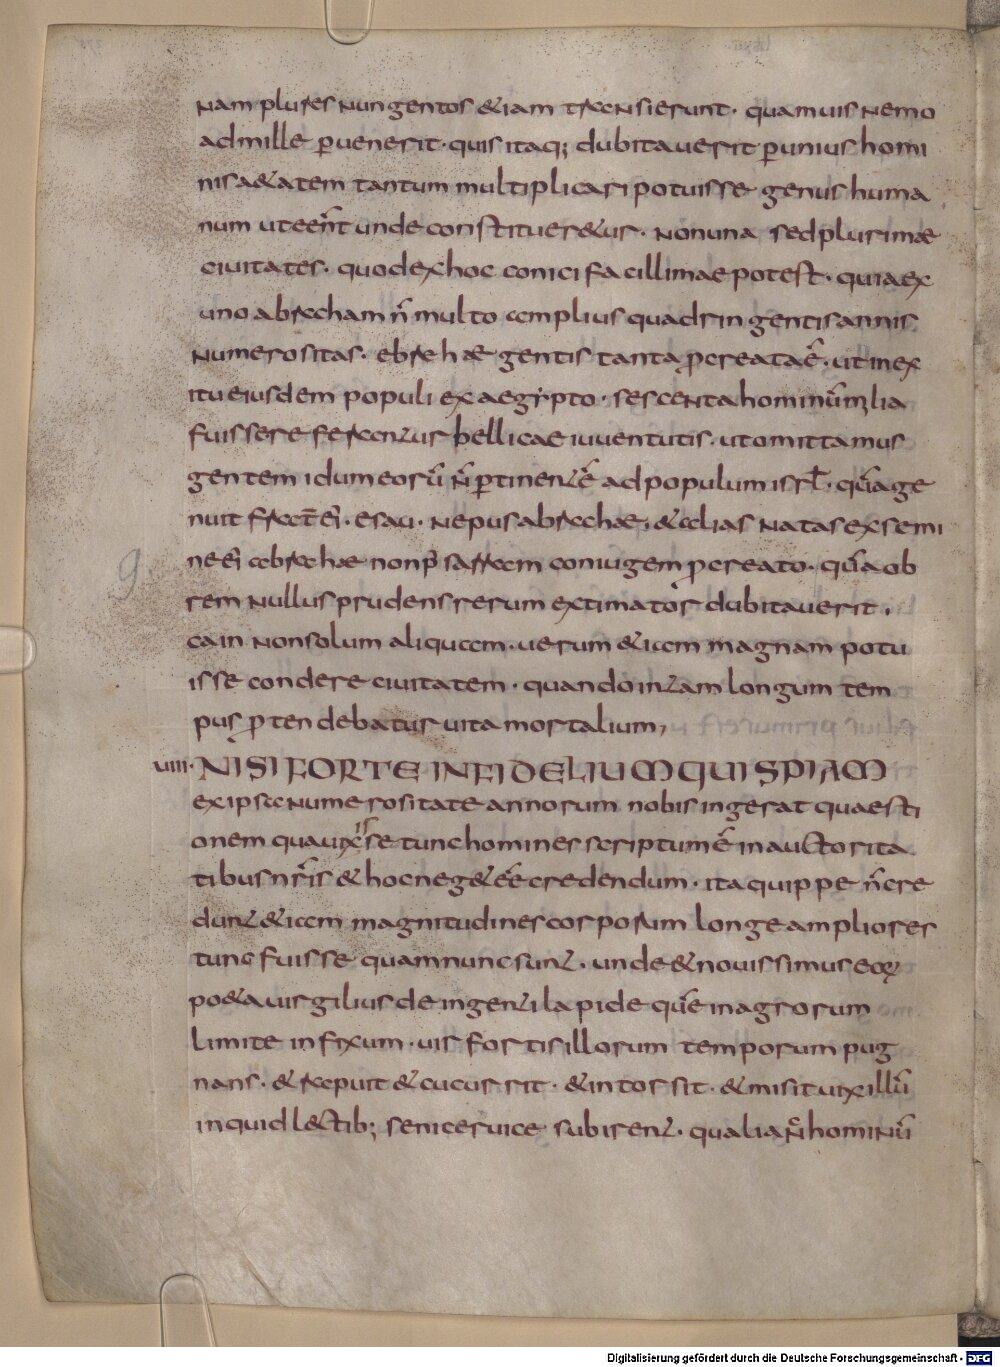 nam plures nungentos &iam transierunt· quamuis nemo
admille ꝑuenerit· quis itaq; dubitauerit ꝑunius homi
nis a&atem tantum multiplicari potuisse genus huma
num ut e&nt unde constituer&ur· non una sed plurimae
ciuitates· quod ex hoc conici facillimae potest· quia ex
uno abraham n̄ multo amplius quadringentis annis
numerositas· ebrehae gentis tanta ꝓcreata ē· ut in ex
itu eiusdem populi ex aegypto· sescenta hominū milia
fuisse referantur bellicae iuuentutis· ut omittamus
gentem idumeorū n̄ ꝑtinentē ad populum isrł· quā ge
nuit frat̄ ei· esau· nepus abrahae, & alias natas ex semi
ne ei abrahae non p̱ sarram coniugem ꝓcreato· quā ob
rem nullus prudens rerum extimator dubitauerit,
cain non solum aliquam· uerum &iam magnam potu
isse condere ciuitatem· quando in tam longum tem
pus ꝓtendebatur uita mortalium,
VIIII· NISI FORTE INFIDELIUM QUISPIAM
ex ipsa numerositate annorum nobis ingerat quaesti
onem qua uixisse tunc homines scriptum ē in auctorita
tibus nr̄is & hoc neg& eē credendum· ita quippe n̄ cre
dunt &iam magnitudines corporum longe ampliores
tunc fuisse quam nunc sunt· unde & nouissimus eoꝝ
po&a uirgilius de ingenti lapide quē in agrorum
limite infixum· uir fortis illorum temporum pug
nans· & rapuit & cucurrit· & intorsit· & misit uix illū
inquid lectib; seni ceruice subirent· qualia n̄c hominū
9.
Digitalisierung gefördert durch die Deutsche Forschungsgemeinschaft - DFG